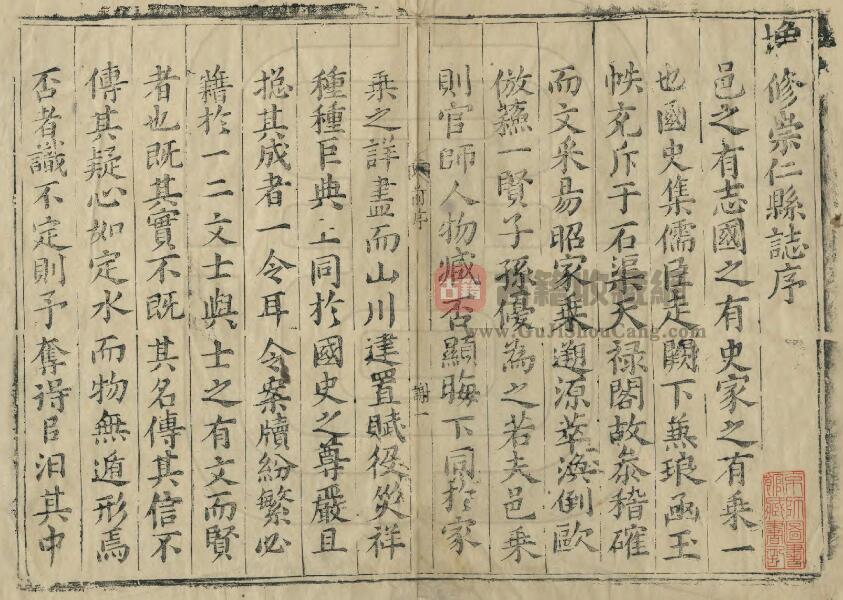 修崇仁縣誌序
邑之有志國之有史家之有乘一
也國史集儒臣走闕下兼琅函玉
帙充斥于石渠天祿閣故叅稽確
而文采易昭家乘遡源萃渙倒歐
倣蘓一賢子孫優為之若夫邑乘
則官師人物臧否顯晦下同於家
前序
乘之詳盡而山川建置賦役災祥
種種巨典上同於國史之尊嚴且
揔其成者一令耳令案牘紛繁必
藉於一二文士與士之有文而賢
者也既其實不既其名傳其信不
傳其疑心如定水而物無遁形焉
否者識不定則予奪得以汨其中
古籍收藏網
www.GuJiShouCang.com